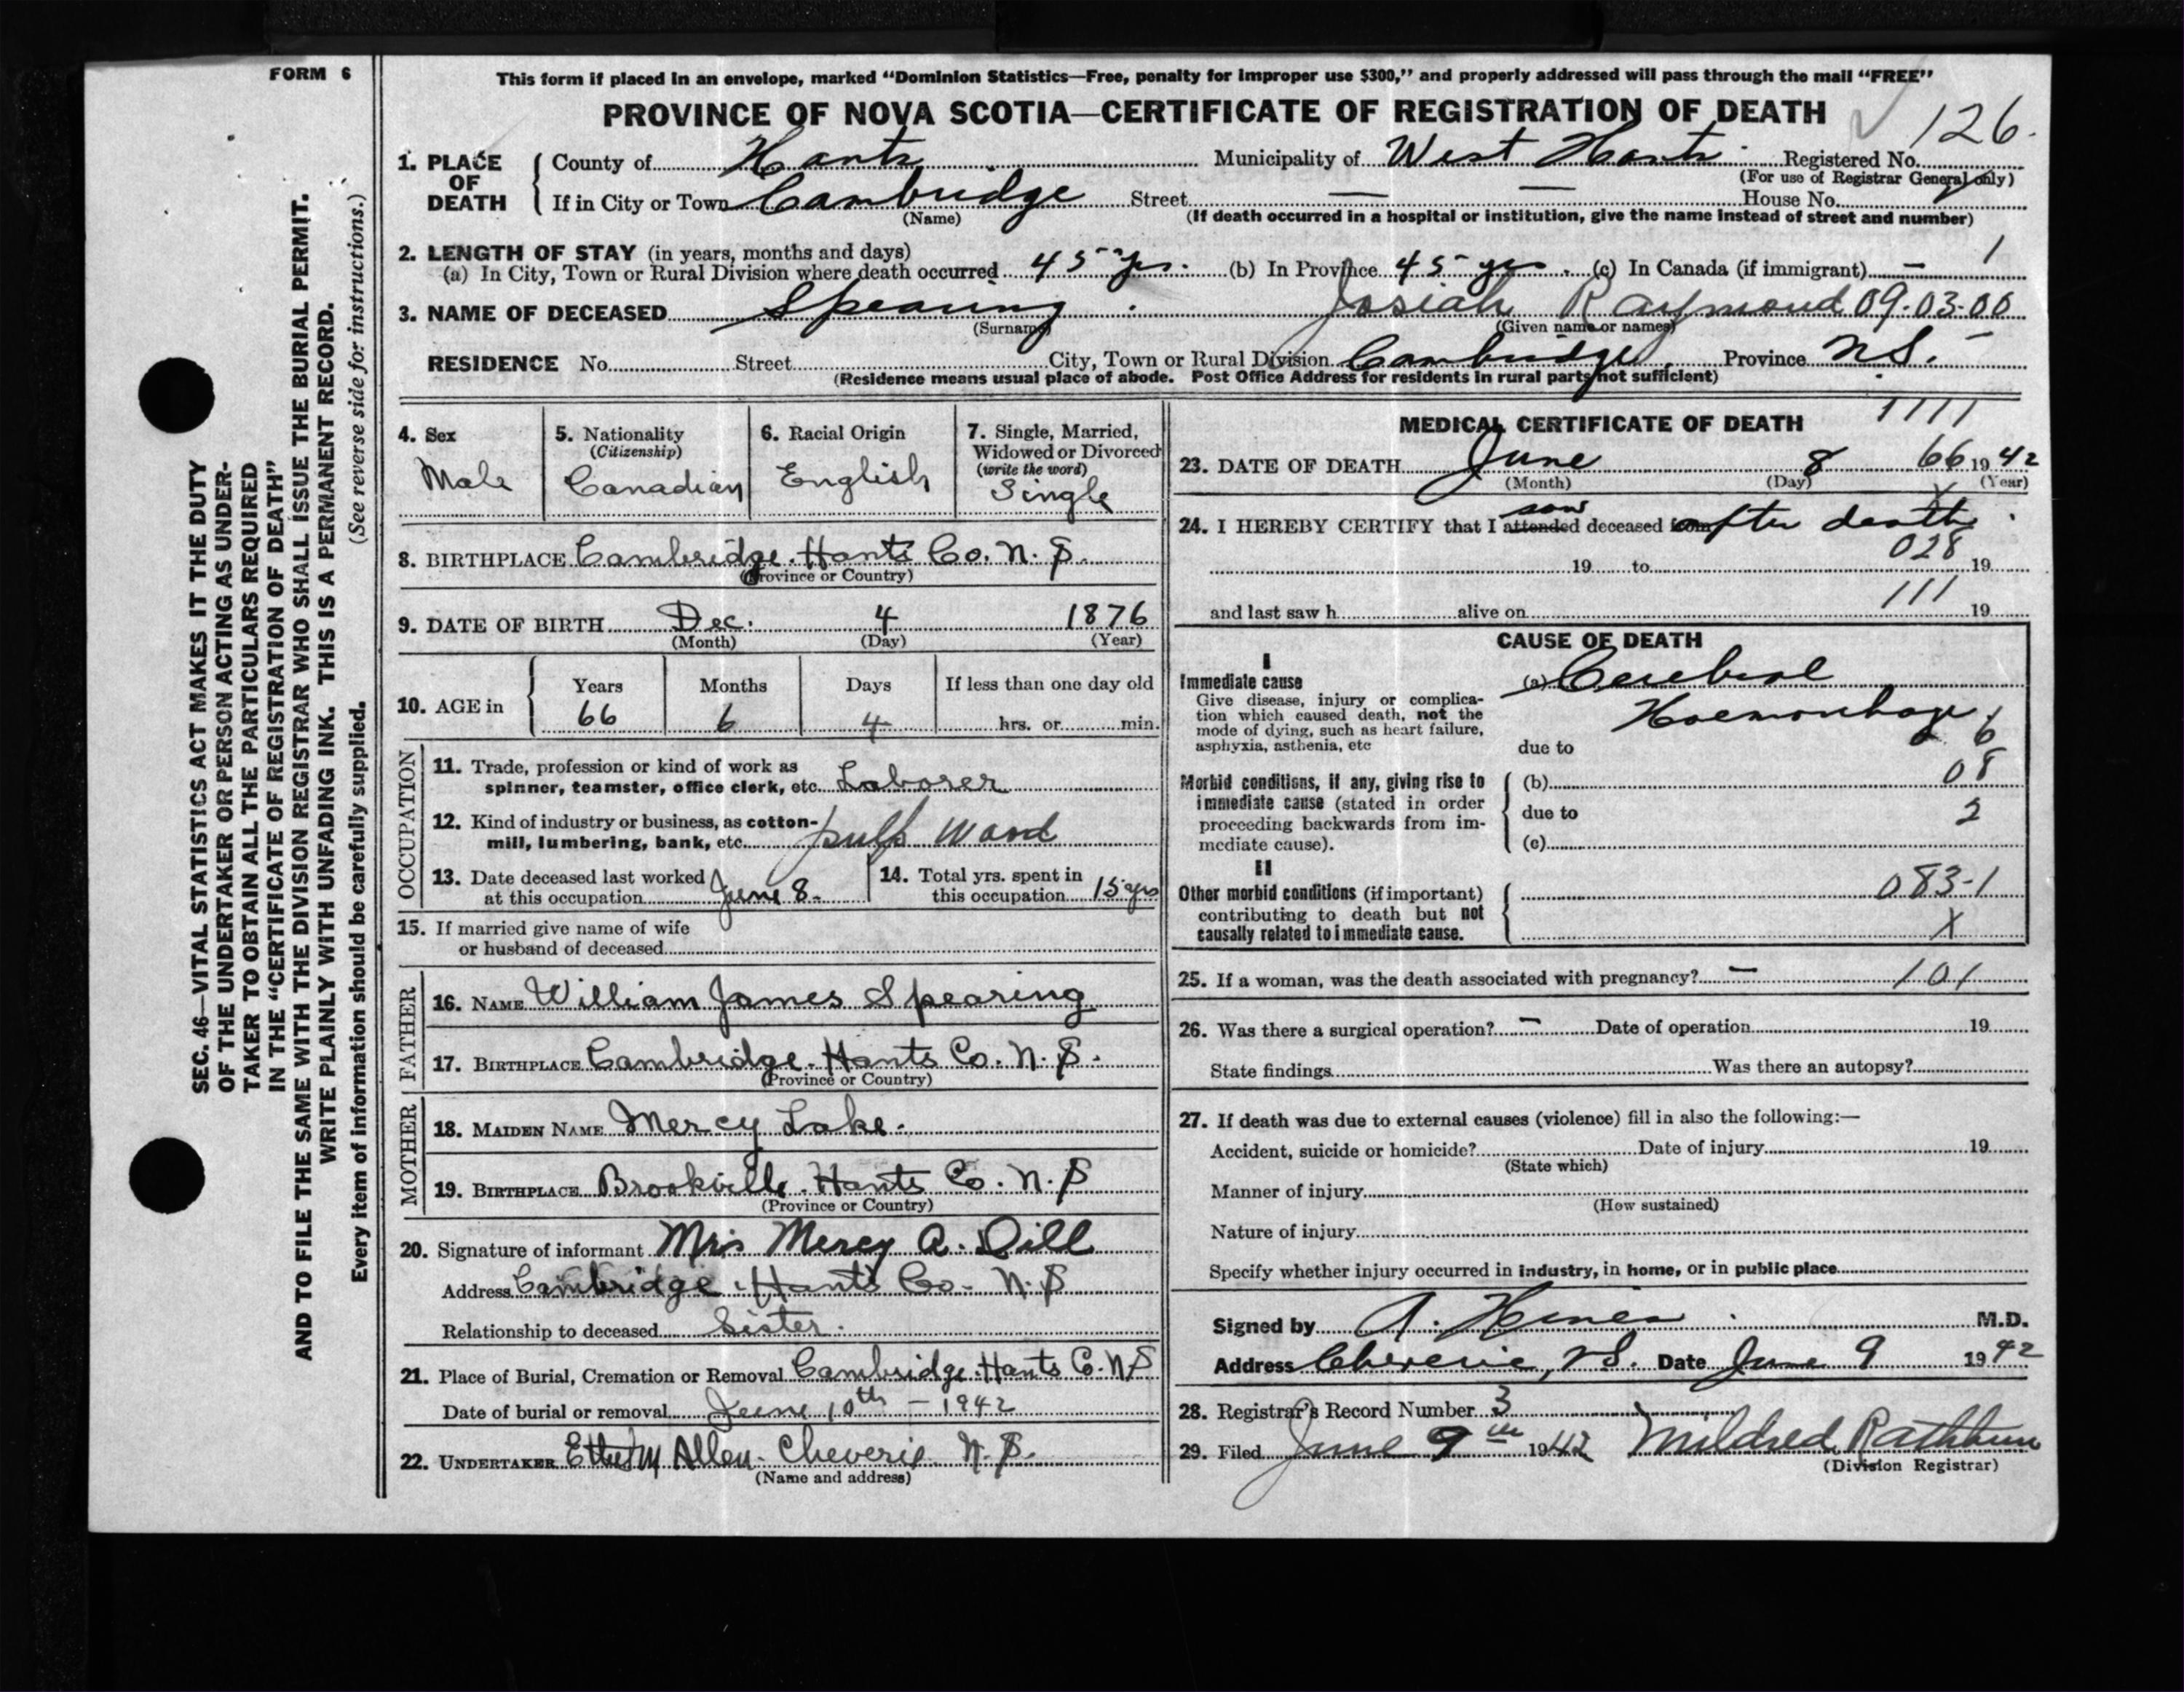 FORM 6
This form if placed in an envelope, marked "Dominion Statistics—Free, penalty for improper use $300," and properly addressed will pass through the mail "FREE"
PROVINCE OF NOVA SCOTIA—CERTIFICATE OF REGISTRATION OF DEATH
126.
1. PLACE OF DEATH
County of Hants Municipality of West Hants Registered No.
(For use of Registrar General only)
If in City or Town Cambridge Street — — House No.
(Name) (If death occurred in a hospital or institution, give the name instead of street and number)
2. LENGTH OF STAY (in years, months and days) 1
(a) In City, Town or Rural Division where death occurred 45 yrs. (b) In Province 45 yrs. (c) In Canada (if immigrant) —
3. NAME OF DECEASED Spearing Josiah Raymond 09.03.00
(Surname) (Given name or names)
RESIDENCE No. Street City, Town or Rural Division Cambridge Province N.S.
(Residence means usual place of abode. Post Office Address for residents in rural parts not sufficient)
4. Sex
Male
5. Nationality
(Citizenship)
Canadian
6. Racial Origin
English
7. Single, Married,
Widowed or Divorced
(write the word)
Single
8. BIRTHPLACE Cambridge. Hants Co. N. S.
(Province or Country)
9. DATE OF BIRTH Dec. 4 1876
(Month) (Day) (Year)
10. AGE in
Years Months Days If less than one day old
66 6 4 hrs. or min.
OCCUPATION
11. Trade, profession or kind of work as
spinner, teamster, office clerk, etc. Laborer
12. Kind of industry or business, as cotton-
mill, lumbering, bank, etc. pulp wood
13. Date deceased last worked
at this occupation June 8.
14. Total yrs. spent in
this occupation 15 yrs
15. If married give name of wife
or husband of deceased
FATHER
16. NAME William James Spearing
17. BIRTHPLACE Cambridge. Hants Co. N. S.
(Province or Country)
MOTHER
18. MAIDEN NAME Mercy Lake.
19. BIRTHPLACE Brookville. Hants Co. N. S
(Province or Country)
20. Signature of informant Mrs Mercy A. Dill
Address Cambridge Hants Co. N. S
Relationship to deceased Sister.
21. Place of Burial, Cremation or Removal Cambridge Hants Co. N S
Date of burial or removal June 10th — 1942
22. UNDERTAKER M Allen. Cheverie N. S.
(Name and address)
1111
MEDICAL CERTIFICATE OF DEATH
23. DATE OF DEATH June 8 66 1942
(Month) (Day) (Year)
X
saw
24. I HEREBY CERTIFY that I attended deceased from after death.
028
19 to 19
111
and last saw h alive on 19
CAUSE OF DEATH
I
Immediate cause
Give disease, injury or complica-
tion which caused death, not the
mode of dying, such as heart failure,
asphyxia, asthenia, etc
(a) Cerebral
Haemorrhage
6
due to
Morbid conditions, if any, giving rise to
immediate cause (stated in order
proceeding backwards from im-
mediate cause).
08
(b)
due to
2
(c)
II
Other morbid conditions (if important)
contributing to death but not
causally related to immediate cause.
083-1
X
25. If a woman, was the death associated with pregnancy? — 101
26. Was there a surgical operation? — Date of operation 19
State findings Was there an autopsy?
27. If death was due to external causes (violence) fill in also the following:—
Accident, suicide or homicide? Date of injury 19
(State which)
Manner of injury
(How sustained)
Nature of injury
Specify whether injury occurred in industry, in home, or in public place
Signed by A. M.D.
Address Cheverie, N.S. Date June 9 1942
28. Registrar's Record Number 3
29. Filed June 9th 1942 Mildred Rathbun
(Division Registrar)
SEC. 46—VITAL STATISTICS ACT MAKES IT THE DUTY
OF THE UNDERTAKER OR PERSON ACTING AS UNDER-
TAKER TO OBTAIN ALL THE PARTICULARS REQUIRED
IN THE "CERTIFICATE OF REGISTRATION OF DEATH"
AND TO FILE THE SAME WITH THE DIVISION REGISTRAR WHO SHALL ISSUE THE BURIAL PERMIT.
WRITE PLAINLY WITH UNFADING INK. THIS IS A PERMANENT RECORD.
Every item of information should be carefully supplied. (See reverse side for instructions.)